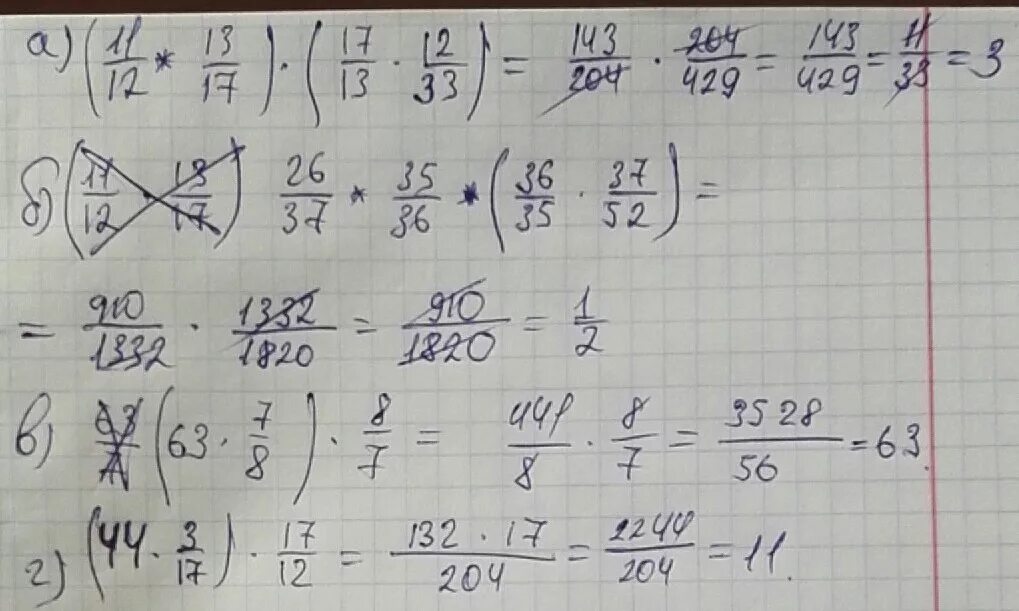 а) (11/12 * 13/17) · (17/13 · 12/33) = 143/204 · 204/429 = 143/429 = 11/33 = 3
б) (11/12 · 13/17) 26/37 * 35/36 * (36/35 · 37/52) =
= 910/1332 · 1332/1820 = 910/1820 = 1/2
в) (63 · 7/8) · 8/7 = 441/8 · 8/7 = 3528/56 = 63.
г) (44 · 3/17) · 17/12 = 132 · 17/204 = 2244/204 = 11.